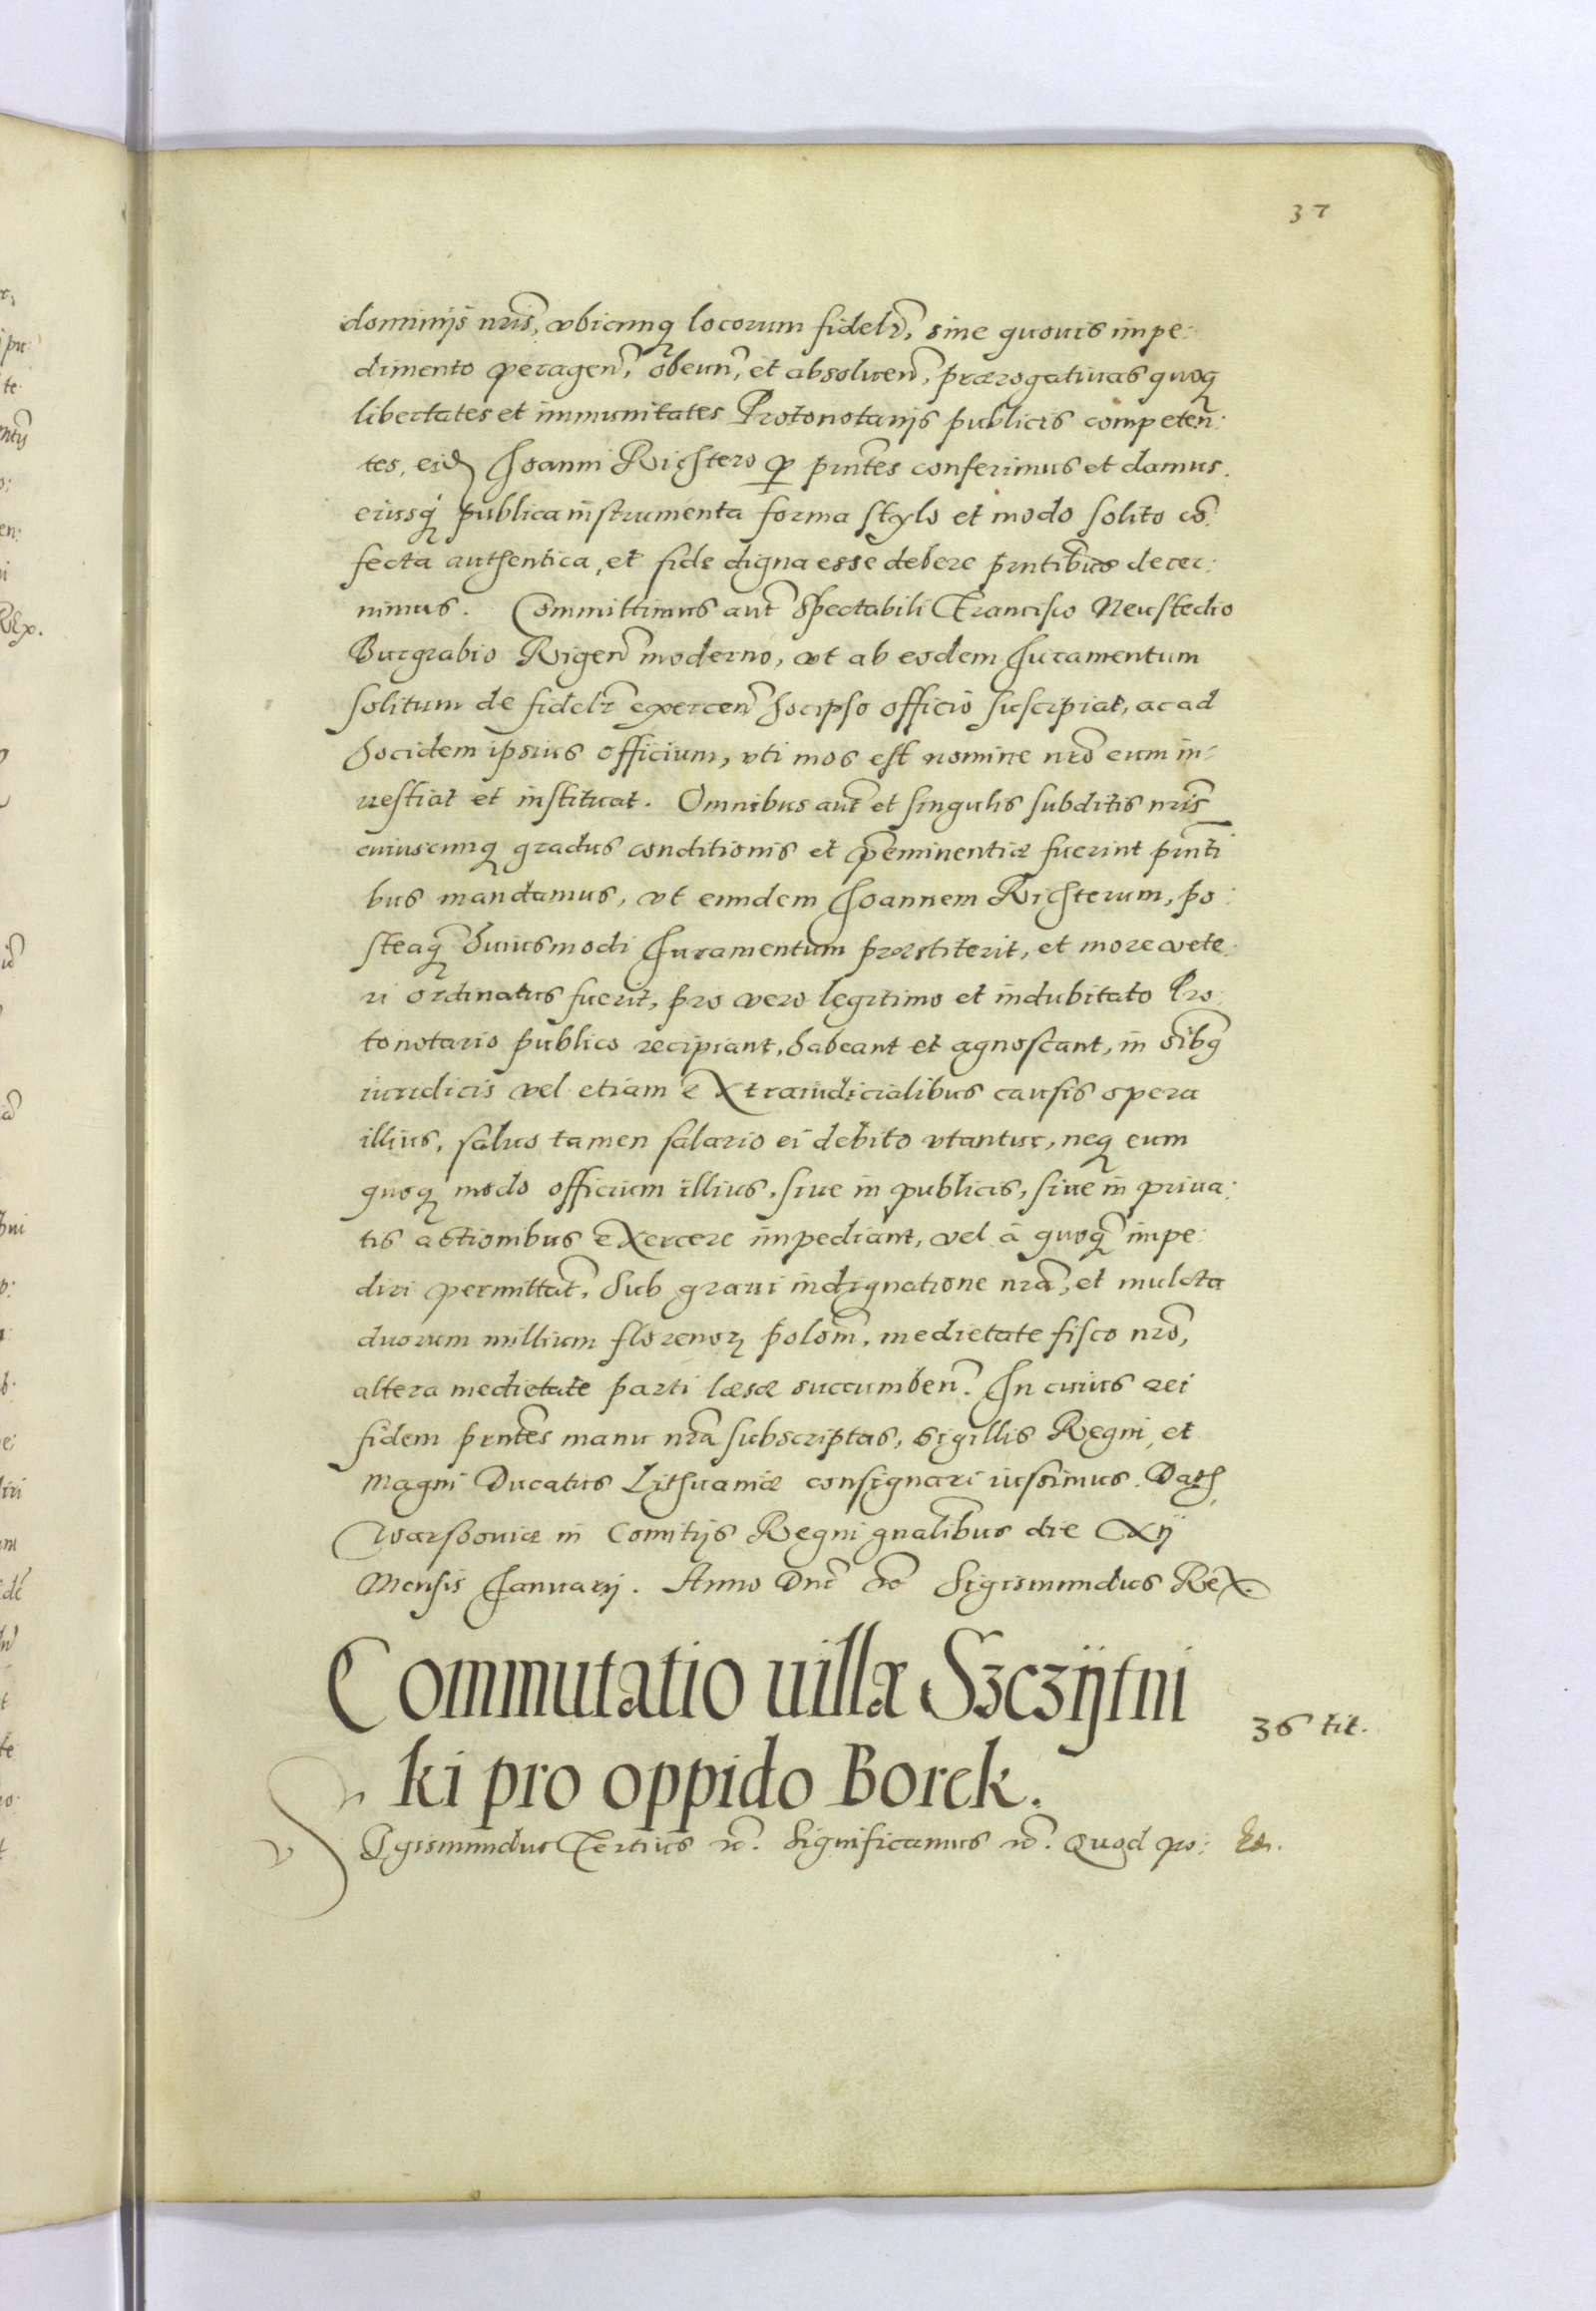 37
dominijs nris, vbicunq locorum fidelr, sine quouis impe:
dimento peragen, obeun, et absoluen, prærogatiuas quoq
libertates et immunitates Protonotarijs publicis competen:
tes, eid Joanni Richtero p pntes conferimus et damus.
eiusq publica instrumenta forma stylo et modo solito co
fecta authentica, et fide digna esse debere pntibus decer:
nimus. Committimus aut Spectabili Francisco Neustedio
Burgrabio Rigen moderno, vt ab eodem Juramentum
solitum de fidelr exercen hocipso officio suscipiat, ac ad
hocidem ipsius officium, vti mos est nomine nro eum in-
uestiat et instituat. Omnibus aut et singulis subditis nris
cuiuscunq gradus conditionis et peminentiæ fuerint pnti
bus mandamus, vt eundem Joannem Richterum, po:
steaq huiusmodi Juramentum præstiterit, et more vete:
ri ordinatus fuerit, pro vero legitimo et indubitato Pro:
tonotario publico recipiant, habeant et agnoscant, in oibq
iuridicis vel etiam extraiudicialibus causis opera
illius, saluo tamen salario ei debito vtantur, neq eum
quoq modo officium illius, siue in publicis, siue in priua:
tis actionibus exercere impediant, vel à quoq impe:
diri permittat, sub graui indignatione nra, et mulcta
duorum millium florenoR polon, medietate fisco nro,
altera medietate parti læsæ succumben. In cuius rei
fidem pntes manu nra subscriptas, sigillis Regni, et
Magni Ducatus Lithuaniæ consignari iussimus. Dat
Warssouiæ in Comitijs Regni gnalibus die Xij
Mensis Januarij. Anno Dni Sigismundus Rex.
Commutatio uillæ Szczijtni
ki pro oppido Borek.
36 tit.
Sigismundus Tertius rc. Significamus rc. Quod po: